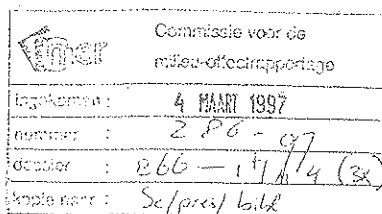 mer
Commissie voor de
milieu-effectrapportage
ingekomen : 4 MAART 1997
nummer : 286-97
dossier : 866-
kopie naar : Sc/pres/bibl